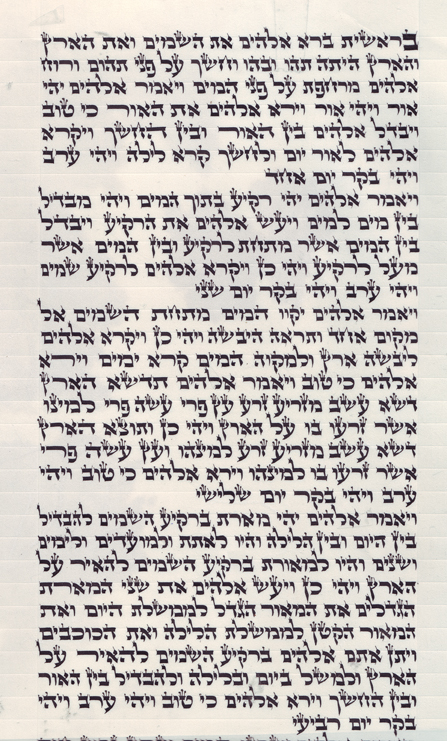 בראשית ברא אלהים את השמים ואת הארץ
והארץ היתה תהו ובהו וחשך על פני תהום ורוח
אלהים מרחפת על פני המים ויאמר אלהים יהי
אור ויהי אור וירא אלהים את האור כי טוב
ויבדל אלהים בין האור ובין החשך ויקרא
אלהים לאור יום ולחשך קרא לילה ויהי ערב
ויהי בקר יום אחד
ויאמר אלהים יהי רקיע בתוך המים ויהי מבדיל
בין מים למים ויעש אלהים את הרקיע ויבדל
בין המים אשר מתחת לרקיע ובין המים אשר
מעל לרקיע ויהי כן ויקרא אלהים לרקיע שמים
ויהי ערב ויהי בקר יום שני
ויאמר אלהים יקוו המים מתחת השמים אל
מקום אחד ותראה היבשה ויהי כן ויקרא אלהים
ליבשה ארץ ולמקוה המים קרא ימים וירא
אלהים כי טוב ויאמר אלהים תדשא הארץ
דשא עשב מזריע זרע עץ פרי עשה פרי למינו
אשר זרעו בו על הארץ ויהי כן ותוצא הארץ
דשא עשב מזריע זרע למינהו ועץ עשה פרי
אשר זרעו בו למינהו וירא אלהים כי טוב ויהי
ערב ויהי בקר יום שלישי
ויאמר אלהים יהי מארת ברקיע השמים להבדיל
בין היום ובין הלילה והיו לאתת ולמועדים ולימים
ושנים והיו למאורת ברקיע השמים להאיר על
הארץ ויהי כן ויעש אלהים את שני המארת
הגדלים את המאור הגדל לממשלת היום ואת
המאור הקטן לממשלת הלילה ואת הכוכבים
ויתן אתם אלהים ברקיע השמים להאיר על
הארץ ולמשל ביום ובלילה ולהבדיל בין האור
ובין החשך וירא אלהים כי טוב ויהי ערב ויהי
בקר יום רביעי